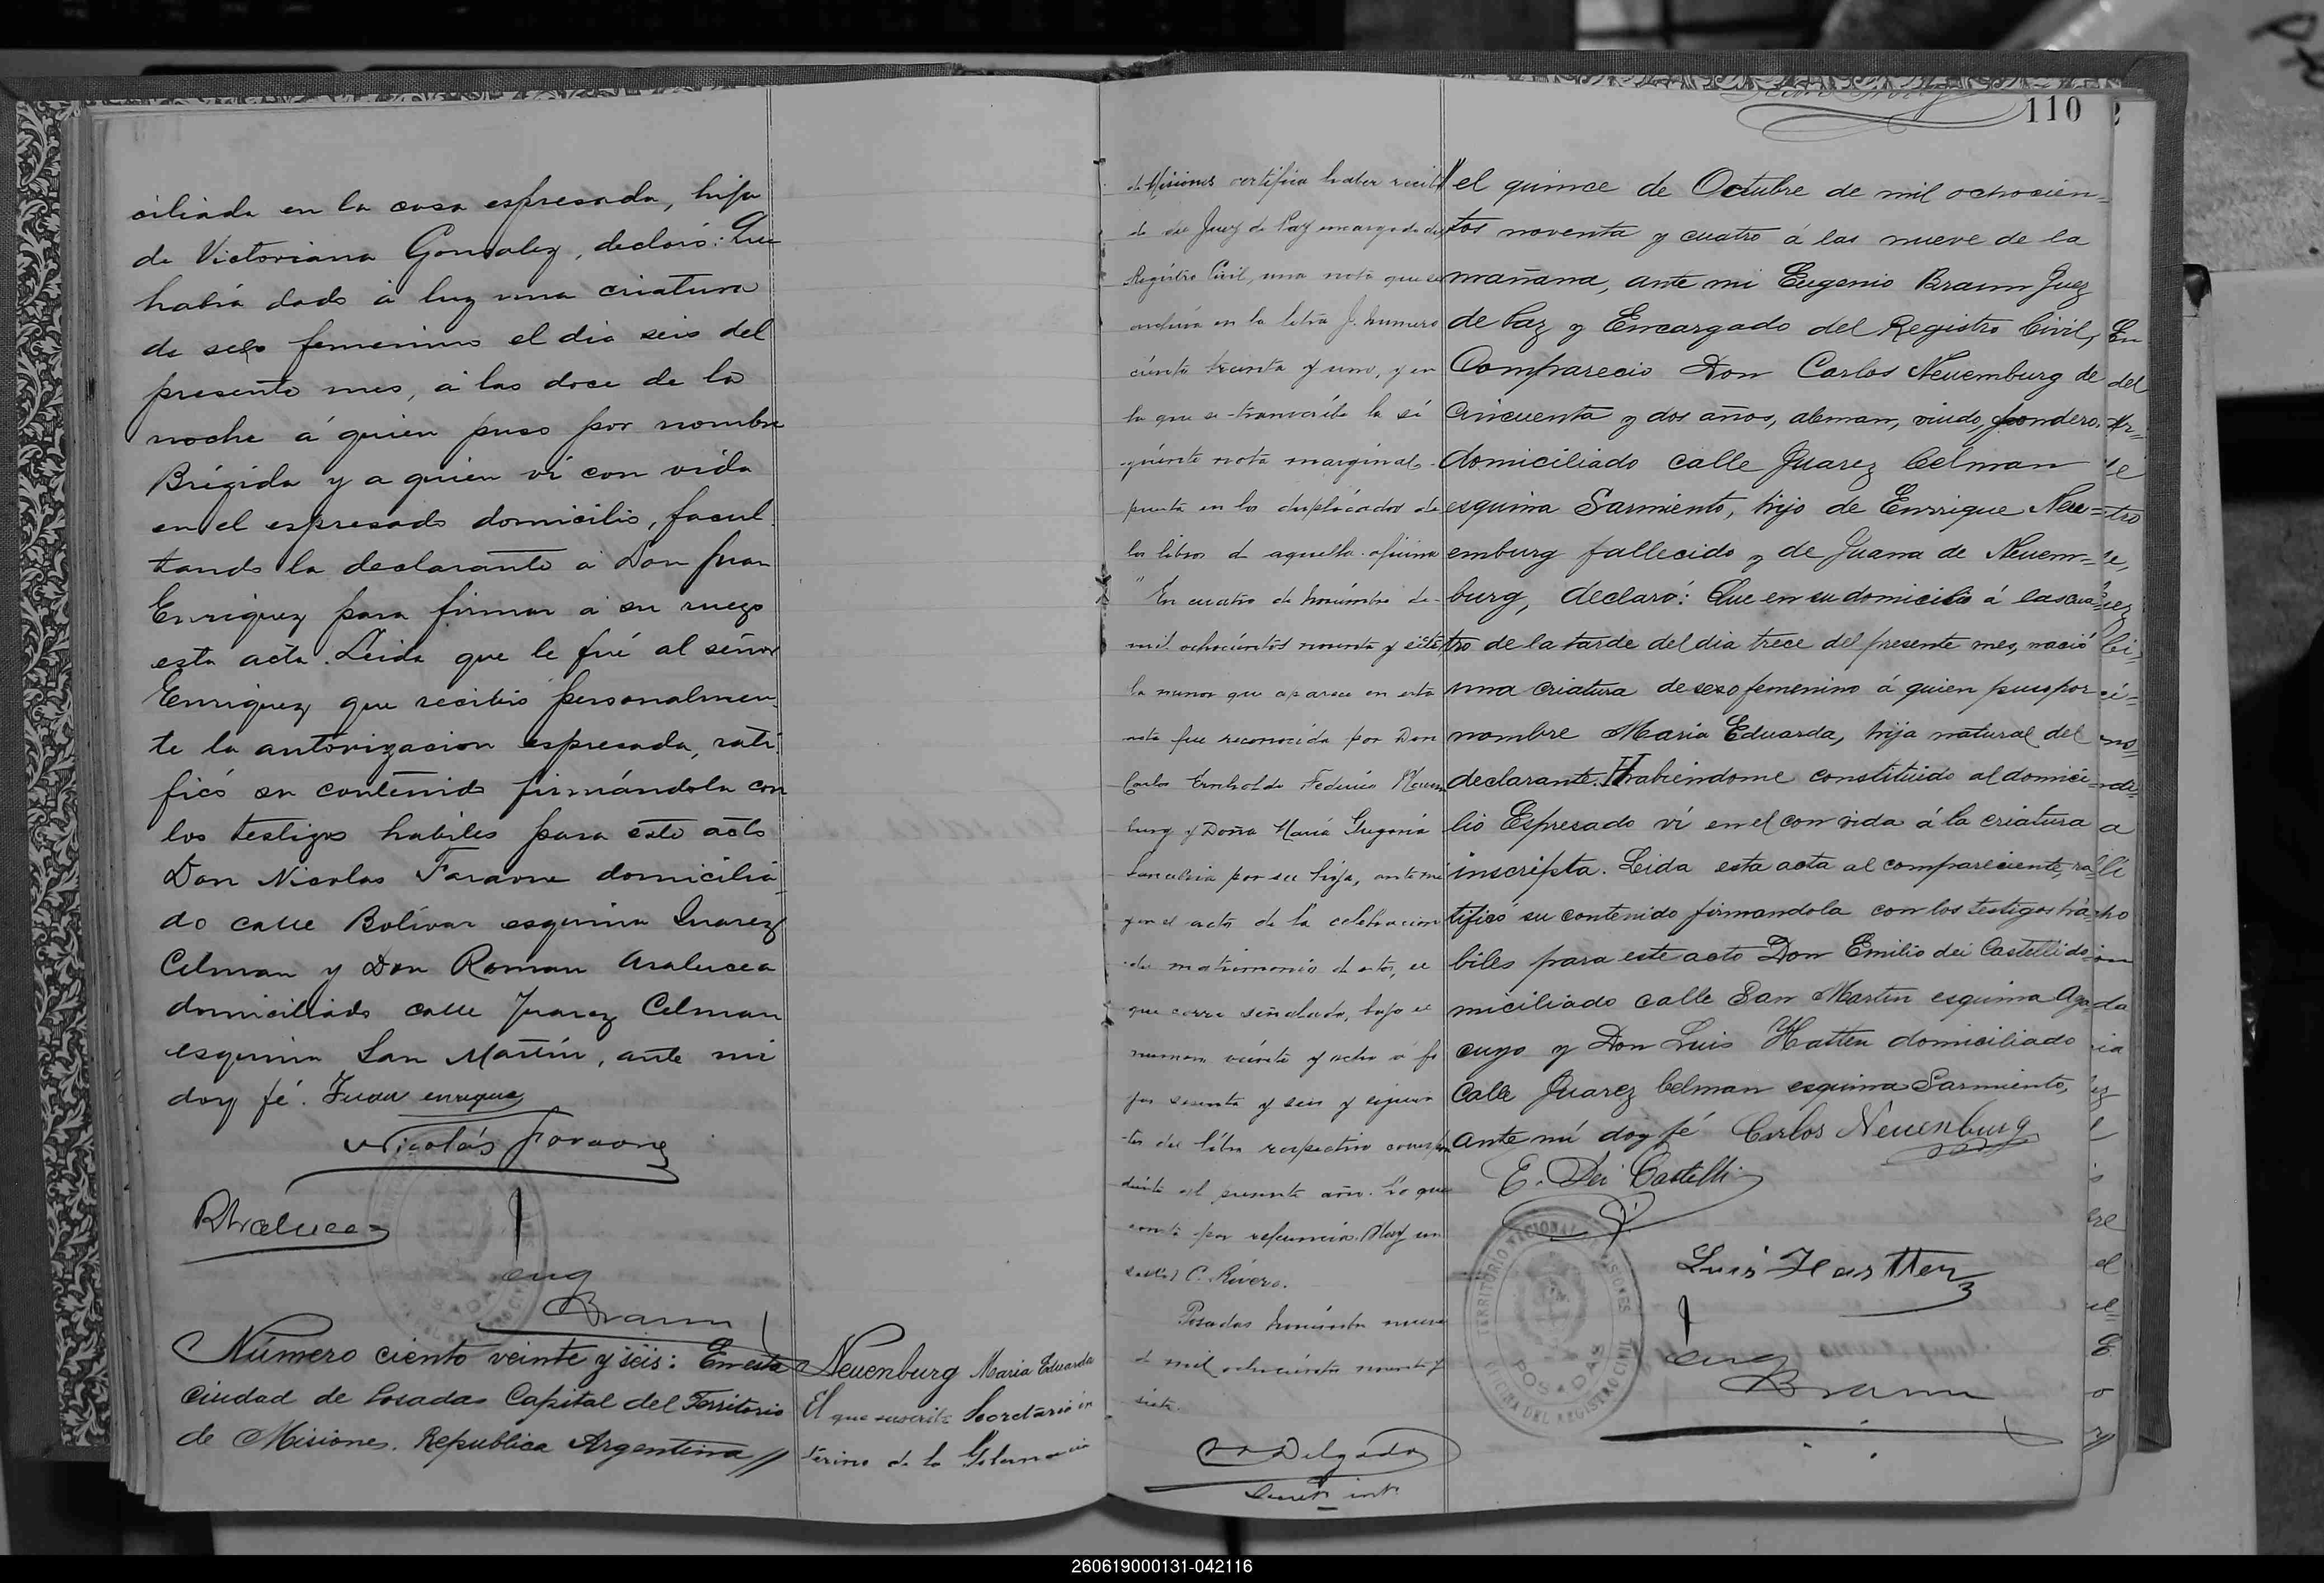 ciliada en la casa espresada, hija
de Victoriana Gonzalez, declaró: Que
había dado á luz una criatura
de sexo femenino el dia seis del
presente mes, á las doce de la
noche á quien puso por nombre
Brígida y a quien ví con vida
en el espresado domicilio, facul
tando la declarante á Don Juan
Enriquez para firmar á su ruego
esta acta. Leida que le fué al señor
Enriquez que recibió personalmen
te la autorizacion espresada, rati
ficó su contenido firmándola con
los testigos habiles para este acto
Don Nicolas Faraone domicilia
do calle Bolívar esquina Juarez
Celman y Don Roman Aralucea
domiciliado calle Juarez Celman
esquina San Martín, ante mi
doy fé. Juan enriquez
Nicolás Faraone
RAralucea
Eug
Braun
Número ciento veinte y seis: En esta
Ciudad de Posadas Capital del Territorio
de Misiones. Republica Argentina //
Neuenburg Maria Eduarda
El que suscribe Secretario in
terino de la Gobernacion
de Misiones certifica haber recibi
do del Juez de Paz encargado del
Registro Civil, una nota que se
archiva en la letra J. numero
ciento treinta y uno, y en
la que se transcribe la si
guiente nota marginal
puesta en los duplicados de
los libros de aquella oficina
" En cuatro de Noviembre de
mil ochocientos noventa y siete
la menor que aparece en esta
acta fue reconocida por Don
Carlos Federico Neuem
burg y Doña María Gregoria
por su hija, ante mi
y en el acto de la celebracion
del matrimonio de estos, el
que corre señalado, bajo el
numero veinte y ocho á fo
jas sesenta y seis y siguien
tes del libro respectivo correspon
diente al presente año. Lo que
consta por referencia. Hay un
sello) C. Rivero.
Posadas Noviembre nueve
de mil ochocientos noventa y
siete.
Delgado
Secret° int°
110
// el quince de Octubre de mil ochocien=
tos noventa y cuatro á las nueve de la
mañana, ante mi Eugenio Braun Juez
de Paz y Encargado del Registro Civil,
Comparecio Don Carlos Neuemburg de
Cincuenta y dos años, aleman, viudo, fondero,
domiciliado calle Juarez Celman
esquina Sarmiento, hijo de Enrrique Neu=
emburg fallecido y de Juana de Neuem=
burg, declaró: Que en su domicilio á las cua=
tro de la tarde del dia trece del presente mes, nació
una criatura de sexo femenino á quien puso por
nombre Maria Eduarda, hija natural del
declarante. Habiéndome constituido al domici=
lio Espresado ví en el con vida á la criatura
inscripta. Leida esta acta al compareciente, ra=
tificó su contenido firmandola con los testigos há=
biles para este acto Don Emilio dei Castelli do=
miciliado calle San Martin esquina Aya=
cuyo y Don Luis Hatten domiciliado
Calle Juarez Celman esquina Sarmiento,
ante mi doy fé Carlos Neuenburg
E. Dei Castelli
Luis Hartten
TERRITORIO NACIONAL DE MISIONES
POSADAS
OFICINA DEL REGISTRO CIVIL
Eug
Braun
260619000131-042116